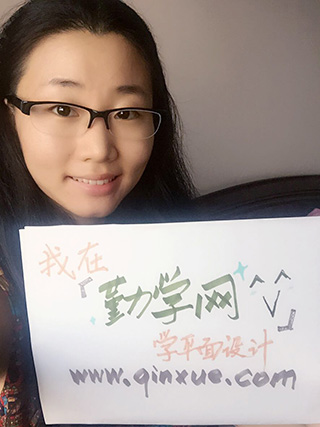 我在
『勤学网^_^』
学平面设计
www.qinxue.com